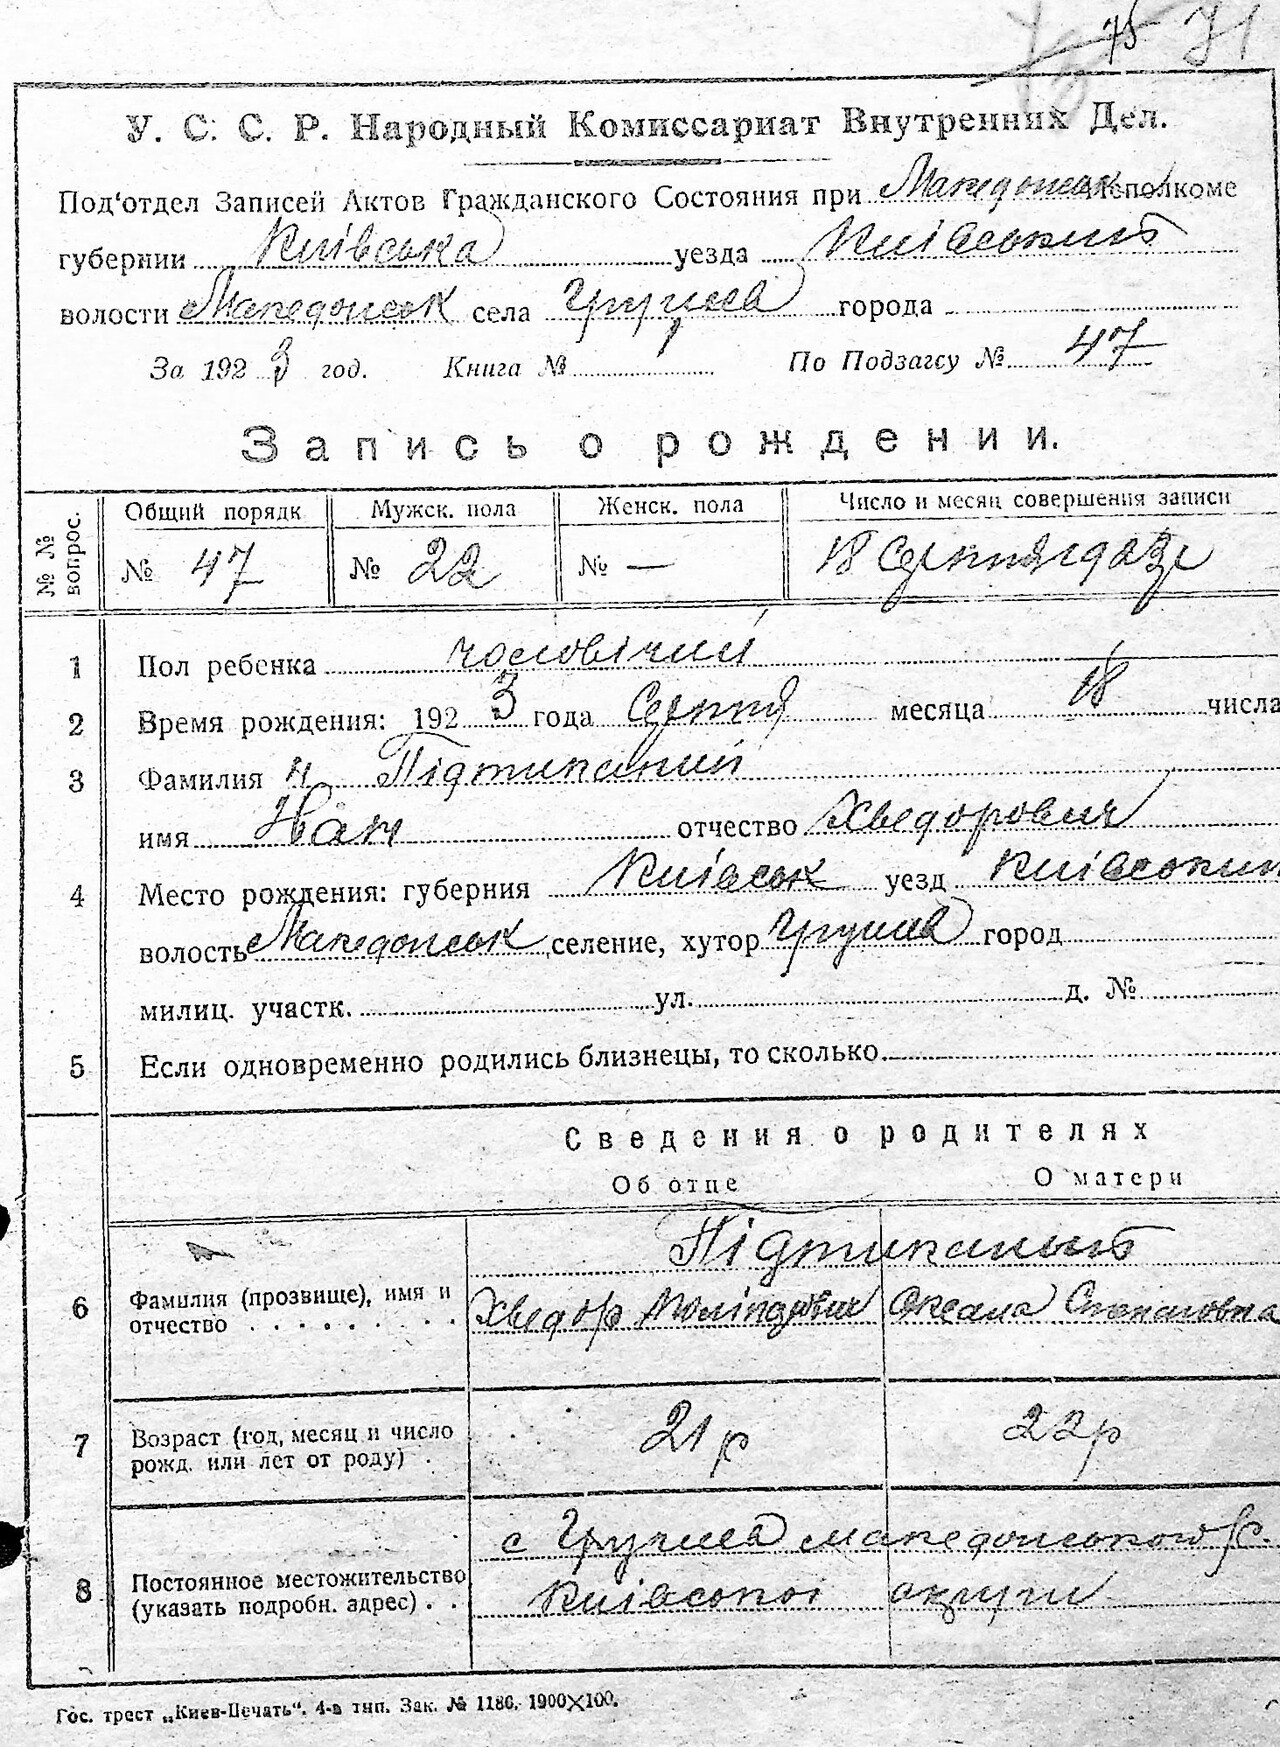 75 71
У. С. С. Р. Народный Комиссариат Внутренних Дел.
Под'отдел Записей Актов Гражданского Состояния при Македонськ Исполкоме
губернии Київська уезда Київський
волости Македонськ села города
За 1923 год. Книга № По Подзагсу № 47
Запись о рождении.
№ № вопрос. Общий порядк Мужск. пола Женск. пола Число и месяц совершения записи
№ 47 № 22 № — 18 Серпня 1923р
1 Пол ребенка чоловічий
2 Время рождения: 1923 года Серпня месяца 18 числа
3 Фамилия Підтиканий
имя Іван отчество Хведорович
4 Место рождения: губерния Київськ уезд Київський
волость Македонськ селение, хутор город
милиц. участк. ул. д. №
5 Если одновременно родились близнецы, то сколько
Сведения о родителях
Об отце О матери
Підтиканий
6 Фамилия (прозвище), имя и Хведор Оксана Степановна
отчество
7 Возраст (год, месяц и число 21 р 22 р
рожд. или лет от роду)
с македонського р.
8 Постоянное местожительство Київської округи
(указать подробн. адрес)
Гос. трест „Киев-Печать“. 4-я тип. Зак. № 1186. 1900×100.